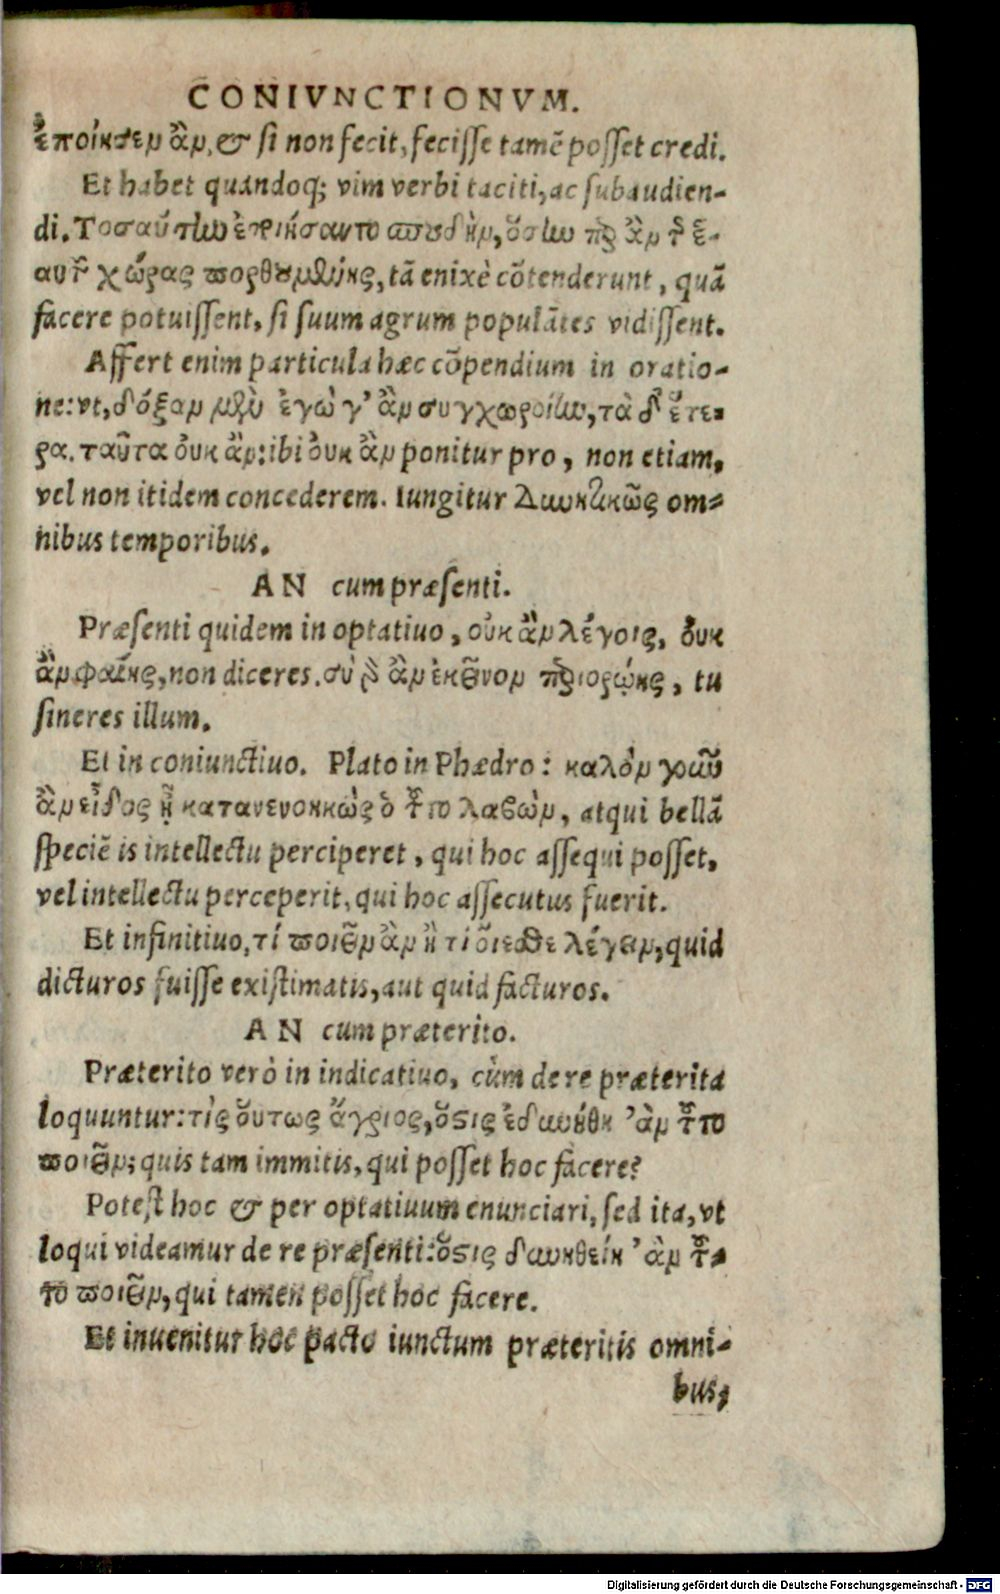 CONIVNCTIONVM.
ἐποίησεν ἂν, & si non fecit, fecisse tamē posset credi.
Et habet quandoq; vim verbi taciti, ac subaudien-
di. Τοσαύτην ἐποιήσαντο σπουδὴν, ὅσην περ ἂν τῆς ἑ-
αυτῶν χώρας πορθουμένης, tā enixè cōtenderunt, quā
facere potuissent, si suum agrum populātes vidissent.
Affert enim particula hæc cōpendium in oratio-
ne: vt, δόξαν μὲν ἐγὼ γ' ἂν συγχωροίην, τὰ δ' ἕτε-
ρα. ταῦτα ὀυκ ἂν: ibi ὀυκ ἂν ponitur pro, non etiam,
vel non itidem concederem. Iungitur Δυνητικῶς om-
nibus temporibus.
AN cum præsenti.
Præsenti quidem in optatiuo, οὐκ ἂν λέγοις, ὀυκ
ἂν φαίης, non diceres. σὺ δ' ἂν ἐκεῖνον περιορῴης, tu
sineres illum.
Et in coniunctiuo. Plato in Phædro: καλὸν γοῦν
ἂν εἶδος ᾖ κατανενοηκὼς ὁ τοῦτο λαβὼν, atqui bellā
speciē is intellectu perciperet, qui hoc assequi posset,
vel intellectu perceperit, qui hoc assecutus fuerit.
Et infinitiuo, τί ποιεῖν ἂν ἢ τί οἴεσθε λέγειν, quid
dicturos fuisse existimatis, aut quid facturos.
AN cum præterito.
Præterito verò in indicatiuo, cùm de re præterita
loquuntur: τίς οὕτως ἄγριος, ὅστις ἐδυνήθη 'ἂν τοῦτο
ποιεῖν; quis tam immitis, qui posset hoc facere?
Potest hoc & per optatiuum enunciari, sed ita, vt
loqui videamur de re præsenti: ὅστις δυνηθείη 'ἂν τοῦ-
το ποιεῖν, qui tamen posset hoc facere.
Et inuenitur hoc pacto iunctum præteritis omni-
bus,
Digitalisierung gefördert durch die Deutsche Forschungsgemeinschaft - DFG